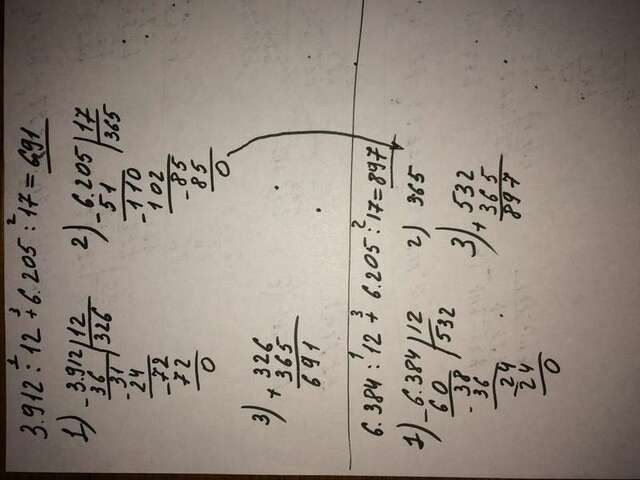 3.912 : 12 + 6.205 : 17 = 691
1 3 2
1) - 3.912 | 12
36 326
- 31
24
- 72
72
0
2) - 6.205 | 17
51 365
- 110
102
- 85
85
0
3) + 326
365
691
6.384 : 12 + 6.205 : 17 = 897
1 3 2
1) - 6.384 | 12
60 532
- 38
36
- 24
24
0
2) 365
3) + 532
365
897